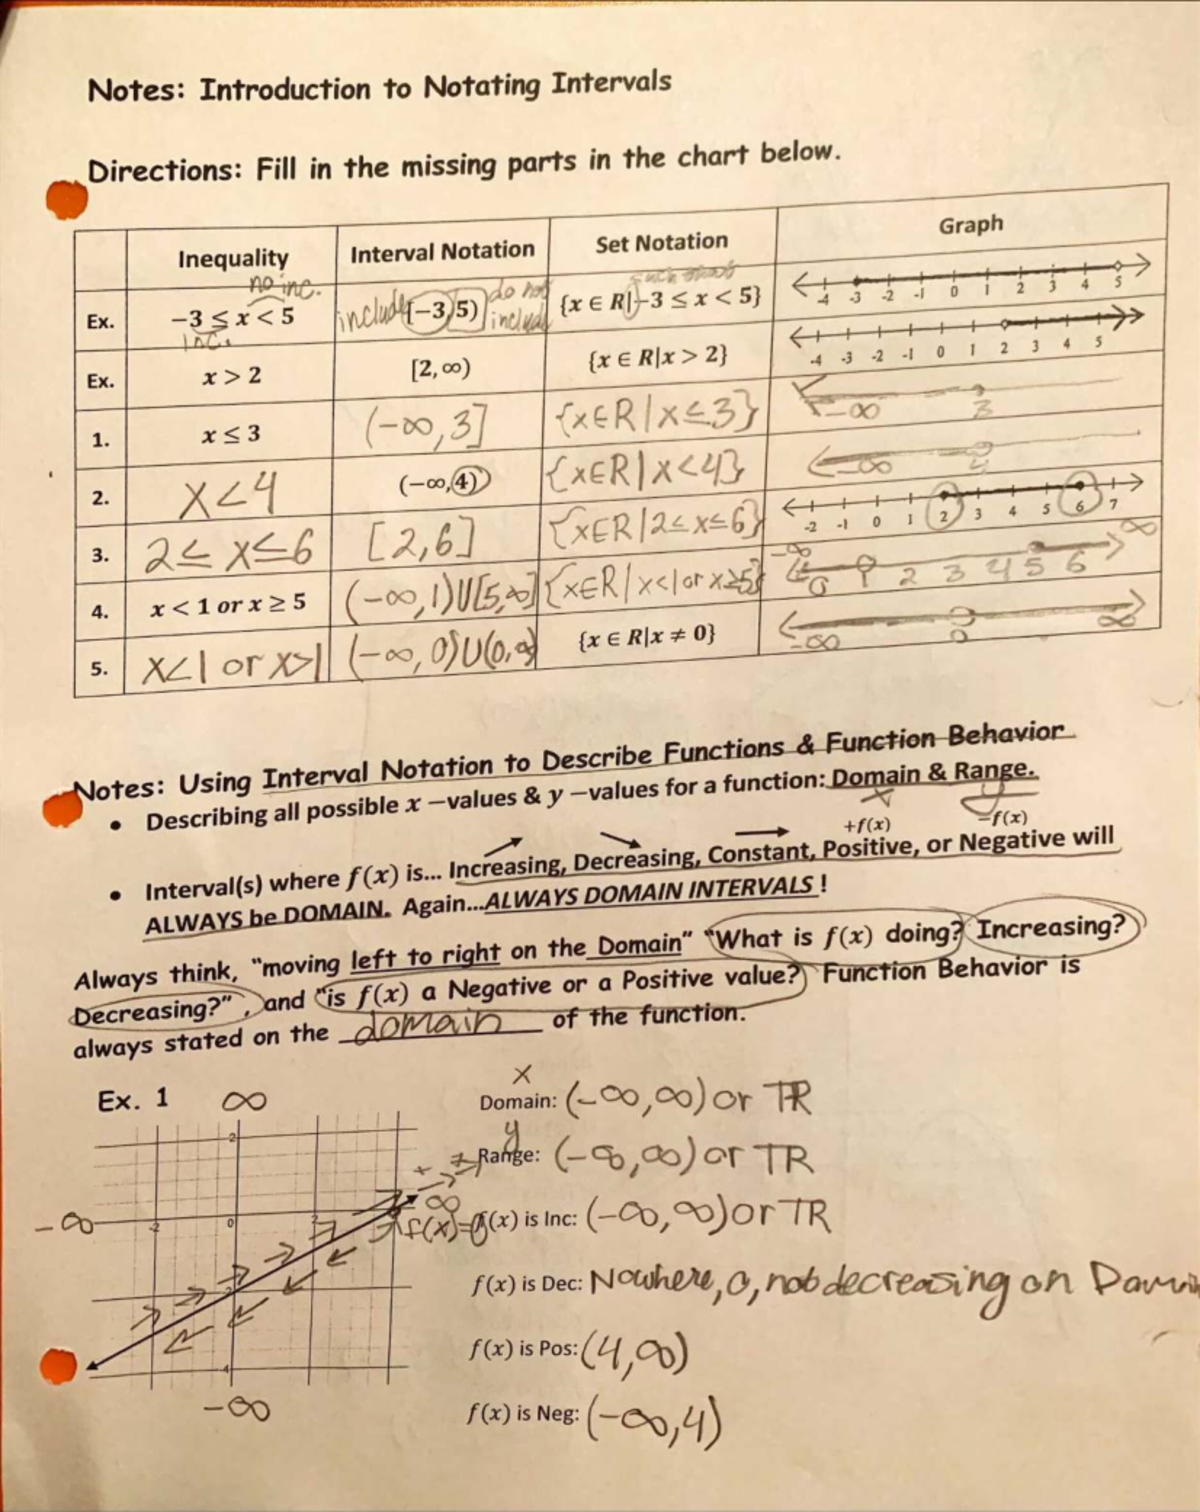 Notes: Introduction to Notating Intervals
Directions: Fill in the missing parts in the chart below.
Inequality Interval Notation Set Notation Graph
no inc. do not such that
Ex. −3 ≤ x < 5 include [−3, 5) include {x ∈ R|−3 ≤ x < 5} -4 -3 -2 -1 0 1 2 3 4 5
inc.
Ex. x > 2 [2, ∞) {x ∈ R|x > 2} -4 -3 -2 -1 0 1 2 3 4 5
1. x ≤ 3 (-∞, 3] {x∈R | x ≤ 3} -∞ 3
2. x < 4 (−∞, 4) {x∈R | x < 4} -∞ 4
3. 2 ≤ x ≤ 6 [2, 6] {x∈R | 2 ≤ x ≤ 6} -2 -1 0 1 2 3 4 5 6 7
4. x < 1 or x ≥ 5 (-∞, 1)U[5, ∞] {x∈R | x<1 or x≥5} -∞ 0 1 2 3 4 5 6 ∞
5. x<1 or x>1 (-∞, 0)U(0, ∞) {x ∈ R|x ≠ 0} -∞ 0 ∞
Notes: Using Interval Notation to Describe Functions & Function Behavior
• Describing all possible x −values & y −values for a function: Domain & Range.
x y
+f(x) −f(x)
• Interval(s) where f(x) is... Increasing, Decreasing, Constant, Positive, or Negative will
ALWAYS be DOMAIN. Again...ALWAYS DOMAIN INTERVALS !
Always think, "moving left to right on the Domain" "What is f(x) doing? Increasing?
Decreasing?", and "is f(x) a Negative or a Positive value?" Function Behavior is
always stated on the domain of the function.
Ex. 1 ∞
x
Domain: (-∞, ∞) or TR
y
Range: (-∞, ∞) or TR
-∞ -2 0 2 2 -4 ∞
f(x)=0
f(x) is Inc: (-∞, ∞) or TR
f(x) is Dec: Nowhere, 0, not decreasing on Domain
f(x) is Pos: (4, ∞)
-∞
f(x) is Neg: (-∞, 4)